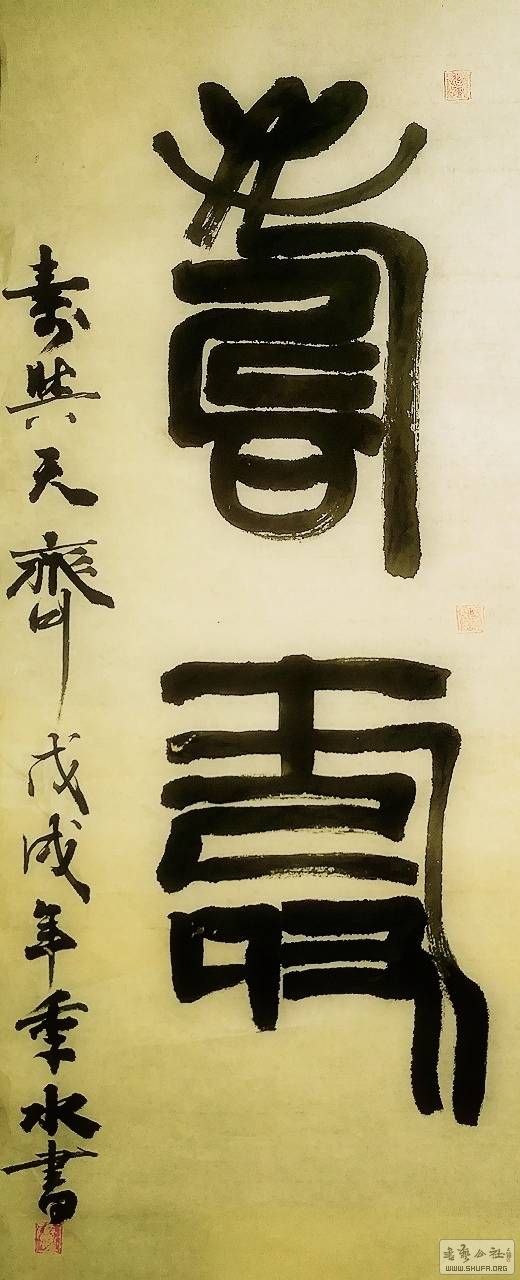 壽
壽
寿與天齊 戊戌年季水書
書藝公社
WWW.SHUFA.ORG